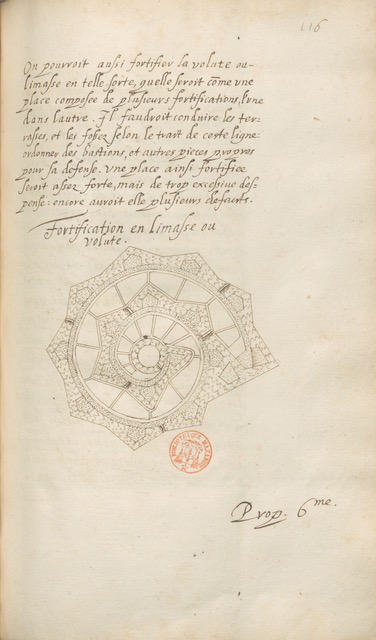 116
On pourroit aussi fortifier la volute ou
limasse en telle sorte, quelle seroit cõme vne
place composee de plusieurs fortifications, l'vne
dans l'autre. Il faudroit conduire les ter-
rasses, et les fossez selon le traict de ceste ligne:
ordonner des bastions, et autres pieces propres
pour sa defense. Vne place ainsi fortifiee
seroit assez forte, mais de trop excessiue des-
pense: encore auroit elle plusieurs defauts.
Fortification en limasse ou
volute.
Prop. 6me.